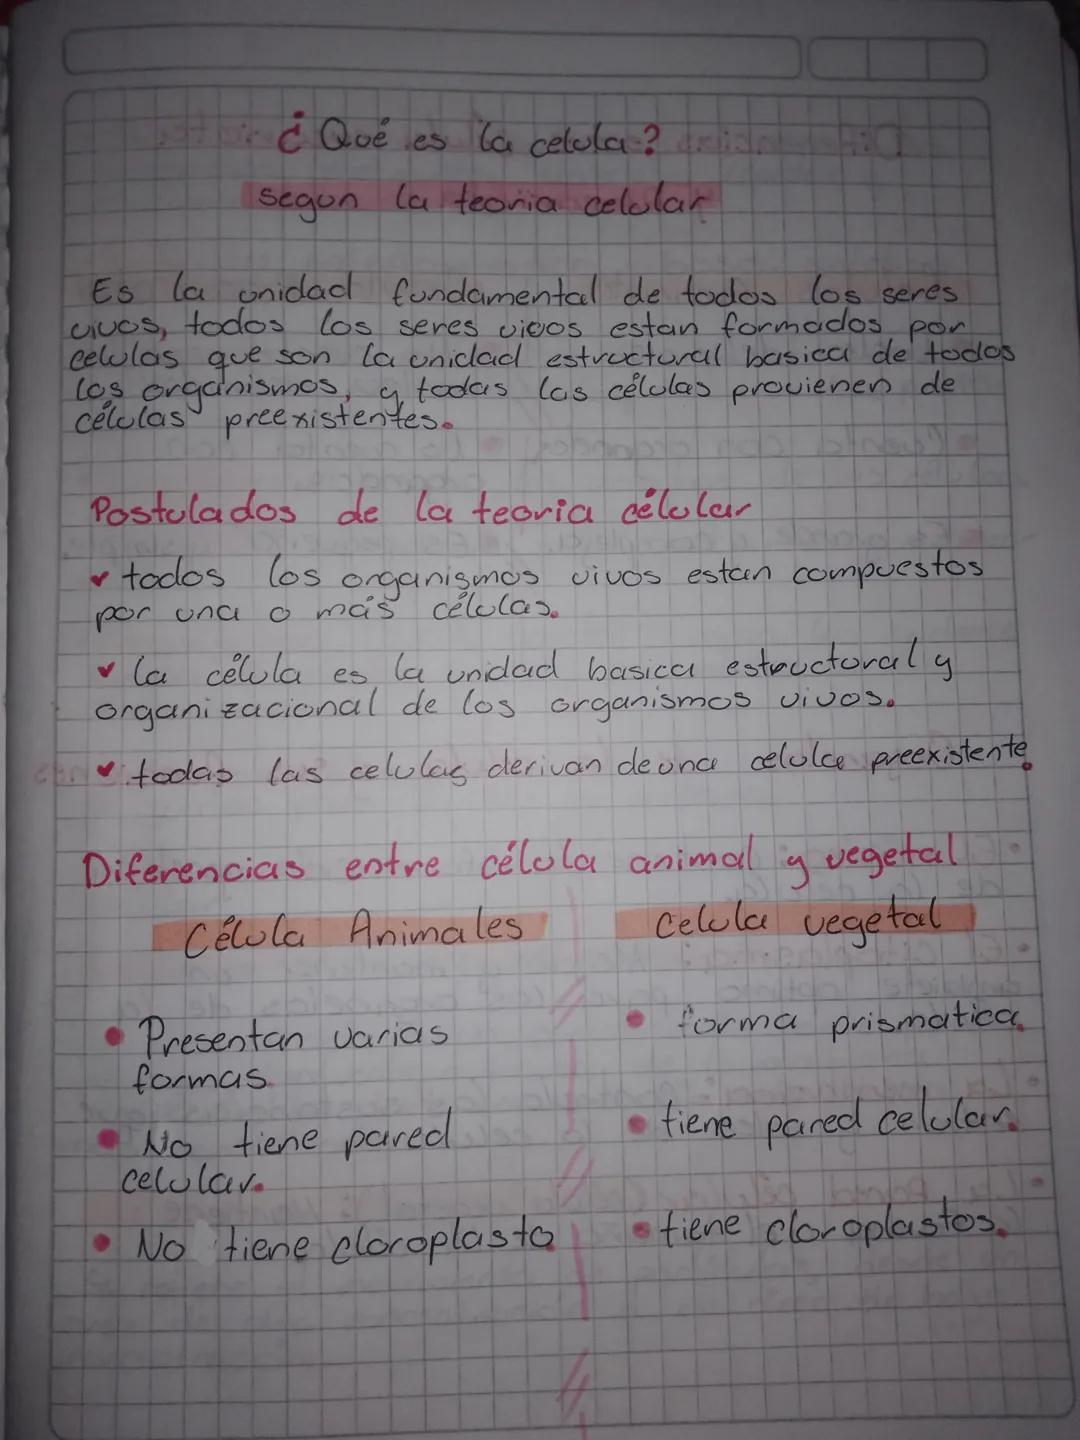 ¿Qué es la celula?
segun la teoria celular
Es la unidad fundamental de todos los seres
vivos, todos los seres vivos estan formados por
celulas que son la unidad estructural basica de todos
los organismos, y todas las células provienen de
células preexistentes.
Postulados de la teoria célular
todos los organismos vivos estan compuestos
por una o más células.
la célula es la unidad basica estructural y
organizacional de los organismos vivos.
todas las celulas derivan de una celula preexistente.
Diferencias entre célula animal y vegetal
Célula Animales
Celula vegetal
• Presentan varias
formas.
• forma prismatica.
• No tiene pared
celular.
• tiene pared celular.
• No tiene cloroplasto
• tiene cloroplastos.